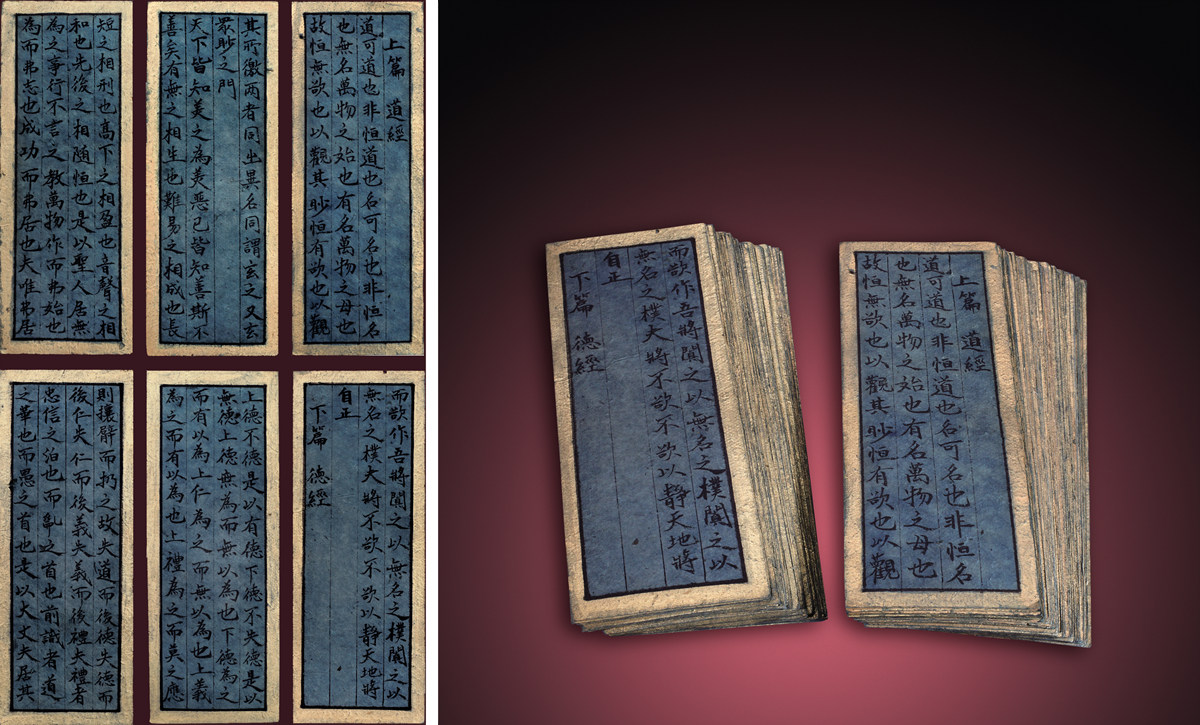 上篇 道經
道可道也非恒道也名可名也非恒名
也無名萬物之始也有名萬物之母也
故恒無欲也以觀其眇恒有欲也以觀
其所徼兩者同出異名同謂玄之又玄
眾眇之門
天下皆知美之為美惡已皆知善斯不
善矣有無之相生也難易之相成也長
短之相刑也高下之相盈也音聲之相
和也先後之相隨恒也是以聖人居無
為之事行不言之教萬物作而弗始也
為而弗志也成功而弗居也夫唯弗居
而欲作吾將闐之以無名之樸闐之以
無名之樸夫將不欲不欲以靜天地將
自正
下篇 德經
上德不德是以有德下德不失德是以
無德上德無為而無以為也下德為之
而有以為上仁為之而無以為也上義
為之而有以為也上禮為之而莫之應
則攘臂而扔之故失道而後德失德而
後仁失仁而後義失義而後禮失禮者
忠信之泊也而亂之首也前識者道
之華也而愚之首也是以大丈夫居其
而欲作吾將闐之以無名之樸闐之以
無名之樸夫將不欲不欲以靜天地將
自正
下篇 德經
上篇 道經
道可道也非恒道也名可名也非恒名
也無名萬物之始也有名萬物之母也
故恒無欲也以觀其眇恒有欲也以觀